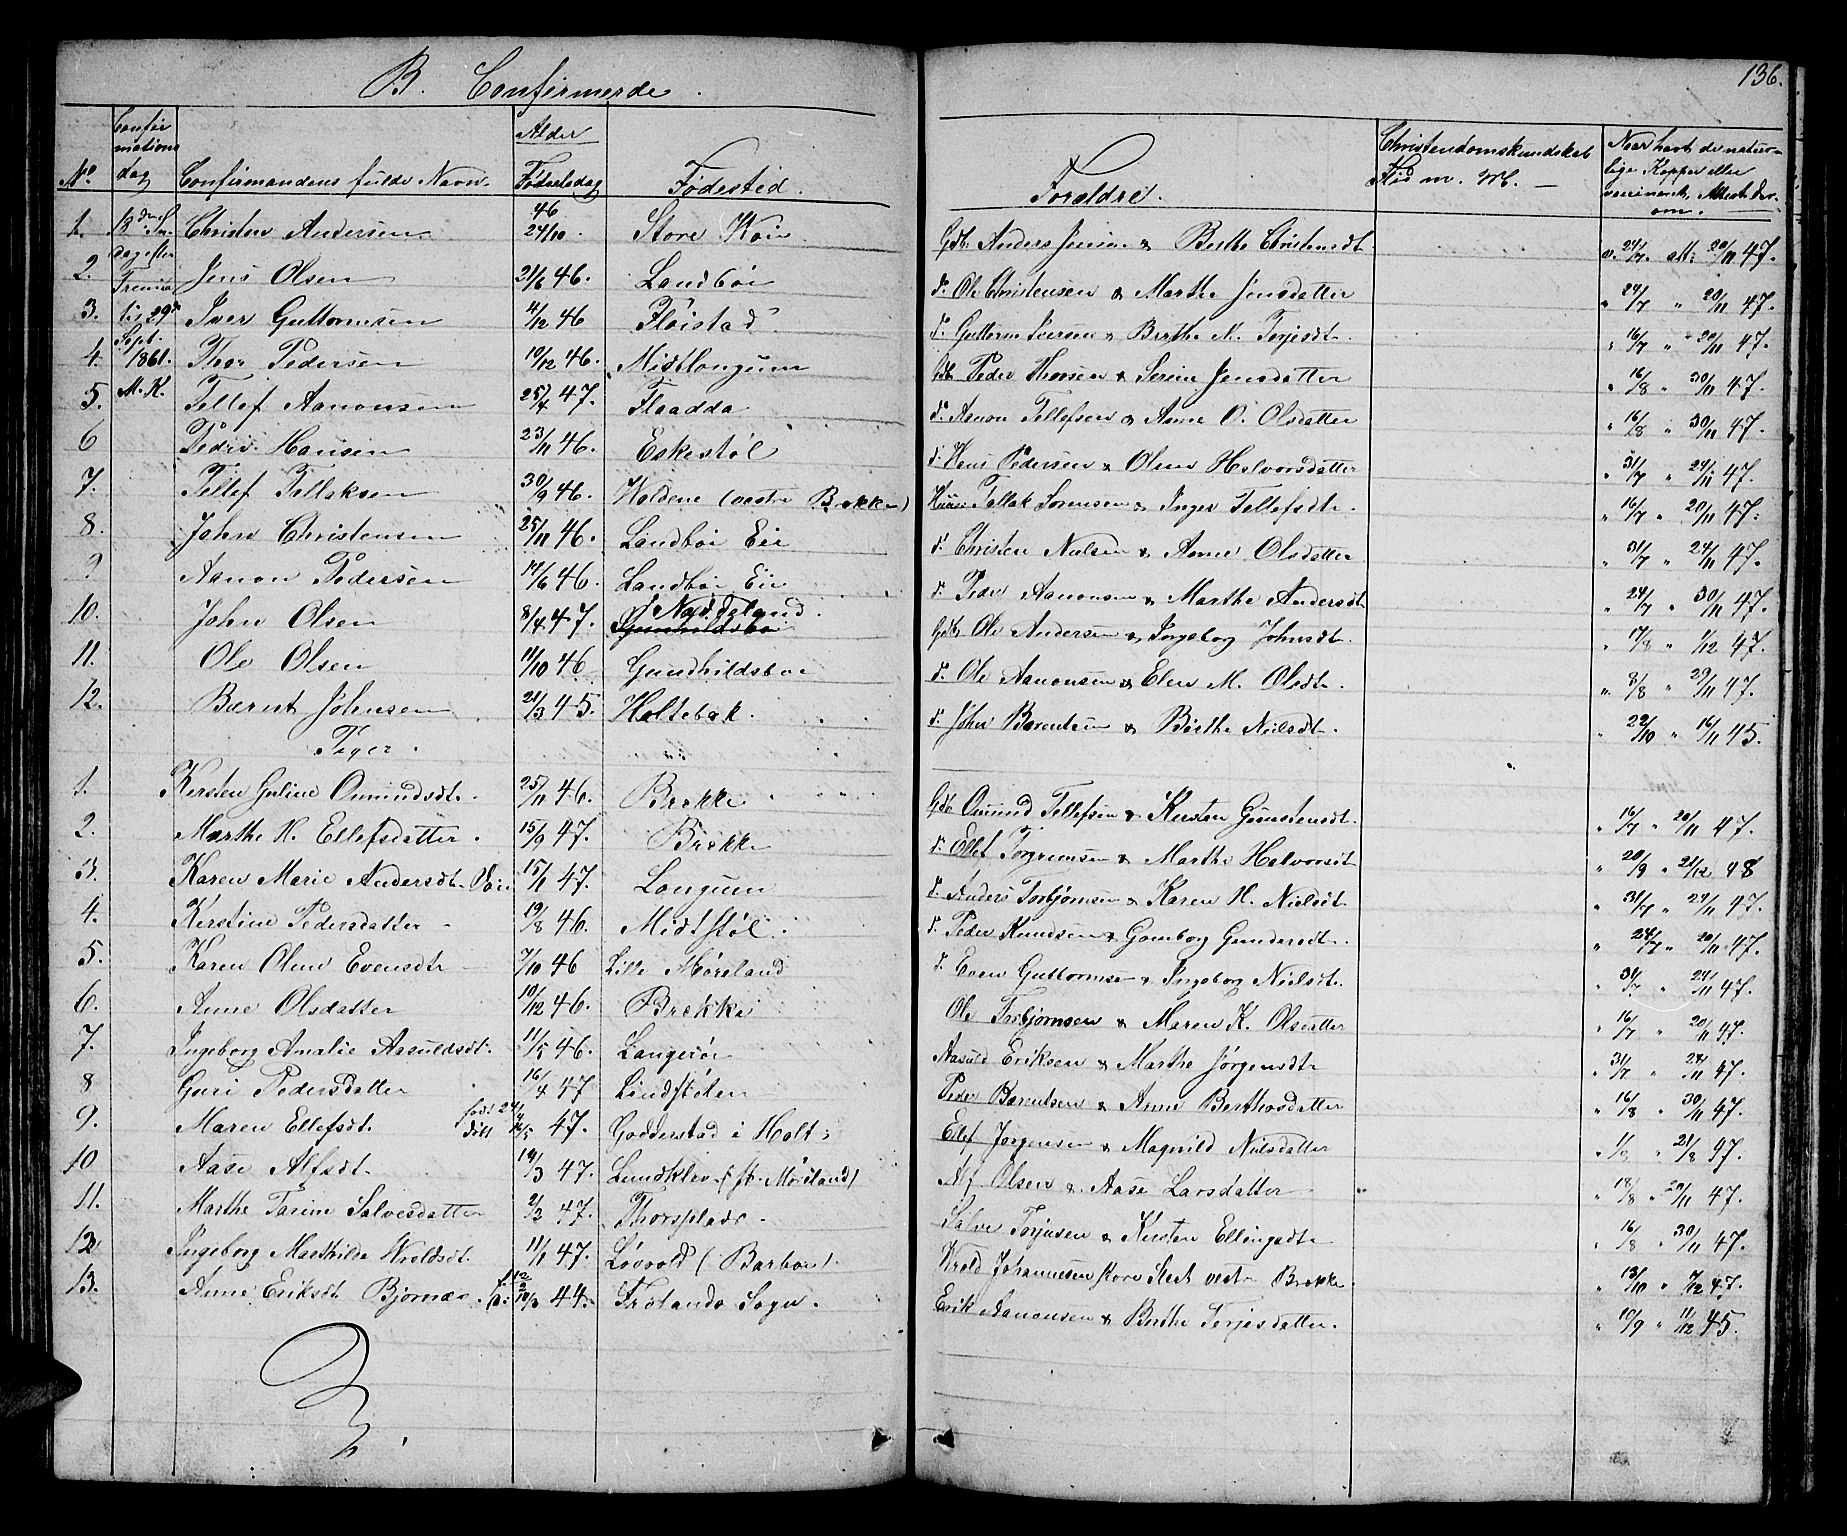 136.
B. Confirmerde.
No. Confirmations dag Confirmandens fulde Navn. Alder Fødselsdag Fødested. Forældre. Christendomskundskab Flid m. M. — Naar havt de naturlige Kopper eller vaccineret, Attest derom.
1. 18de S. Christen Andersen 46 24/10. Store Gdb. Anders Jensen & Berthe Christensdt. v. 24/7 att: 20/11 47.
2. dag efter Jens Olsen 21/6 46. Landbøi d. Ole Christensen & Marthe Jensdatter " 24/7 " 20/11 47.
3. 29de Iver Guttormsen 4/12 46 Fløistad d. Guttorm Iversen & Berthe M. Terjesdt. " 16/7 " 20/11 47.
4. Sept. 1861. Thor Pedersen 19/12 46. Midtlongum Gdb. Peder Thorsen & Serine Jensdatter " 16/8 " 30/11 47.
5. M. K. Tellef Aanonsen 25/4 47. Flaadda d. Aanon Tellefsen & Anne O. Olsdatter " 16/8 " 30/11 47.
6 Peder Hansen 23/11 46. Eskestøl d. Hans Pedersen & Olene Halvorsdatter " 31/7 " 24/11 47.
7. Tellef Tellaksen 30/9 46. Woldene (vestre Brekke) Tellak Sørensen & Inger Tellefsdt. " 16/7 " 20/11 47.
8. John Christensen 25/11 46. Landbøi Eie d. Christen Nielsen & Anne Olsdatter " 31/7 " 24/11 47.
9 Aanon Pedersen 14/6 46. Landbøi Eie d. Peder Aanonsen & Marthe Andersdt. " 24/7 " 30/11 47.
10. John Olsen 8/4 47. Gunhildsboe Gdb. Ole Andersen & Ingeborg Johnsdt. " 17/8 " 1/12 47.
11. Ole Olsen 11/10 46 Gundhildsboe d. Ole Aanonsen & Elen M. Olsdt. " 8/8 " 29/11 47.
12. Barnt Johnsen 21/3 45. Holtebæk. d. John Barentsen & Berthe Nielsdt. " 22/10 " 16/11 45.
Piger.
1. Kersten Guline Omundsdt. 25/11 46. Brekke Gdb. Omund Tellefsen & Kersten Gunstensdt. " 16/7 " 20/11 47.
2. Marthe H. Ellefsdatter. 15/9 47. Brekke d. Ellef Torgrimsen & Marthe Halvorsdt. " 20/9 " 21/12 48
3. Karen Marie Andersdt. 15/1 47. Longum d. Anders Torbjørnsen & Karen H. Nielsdt. " 31/7 " 24/11 47.
4. Kerstine Pedersdatter 19/8 46. Midtstøl. d. Peder Knudsen & Gomborg Gundersdt. " 24/7 " 20/11 47.
5. Karen Oline Evensdtr 7/10 46 Lille Møreland d. Even Guttormsen & Ingeborg Nielsdt. " 31/7 " 24/11 47.
6. Anne Olsdatter 19/12 46. Brekke Ole Torbjørnsen & Maren K. Olsdatter " 16/7 " 20/11 47.
7. Ingeborg Amalie Aasuldsdt. 11/5 46. Langerør Aasuld Eriksen & Marthe Jørgensdt. " 31/7 " 24/11 47.
8 Guri Pedersdatter 16/4 47 Lindstølen Peder Barentsen & Anne Berthosdatter " 16/8 " 30/11 47.
9. Maren Ellefsdt. født 24/4 døbt 16/5 47. Godderstad i Holt Ellef Jørgensen & Magnild Nielsdatter " 1/8 " 21/8 47.
10 Aase Alfsdt. 19/3 47. Lundklev (st. Møreland) Alf Olsen & Aase Larsdatter " 18/8 " 20/11 47.
11. Marthe Tarine Salvesdatter 2/2 47. Thorsplads. Salve Terjesen & Kersten Ellingsdtr " 16/8 " 30/11 47.
12 Ingeborg Marthilde Wroldsdt. 11/1 47. Løvvold (Barboe). Wrold Johannesen store Sletvestre Brekke. " 13/10 " 7/12 47.
13. Anne Eriksdt. Bjørnæs. 44. Frølands Sogn. Erik Aanonsen & Berthe Terjesdatter. " 19/9 " 11/12 45.